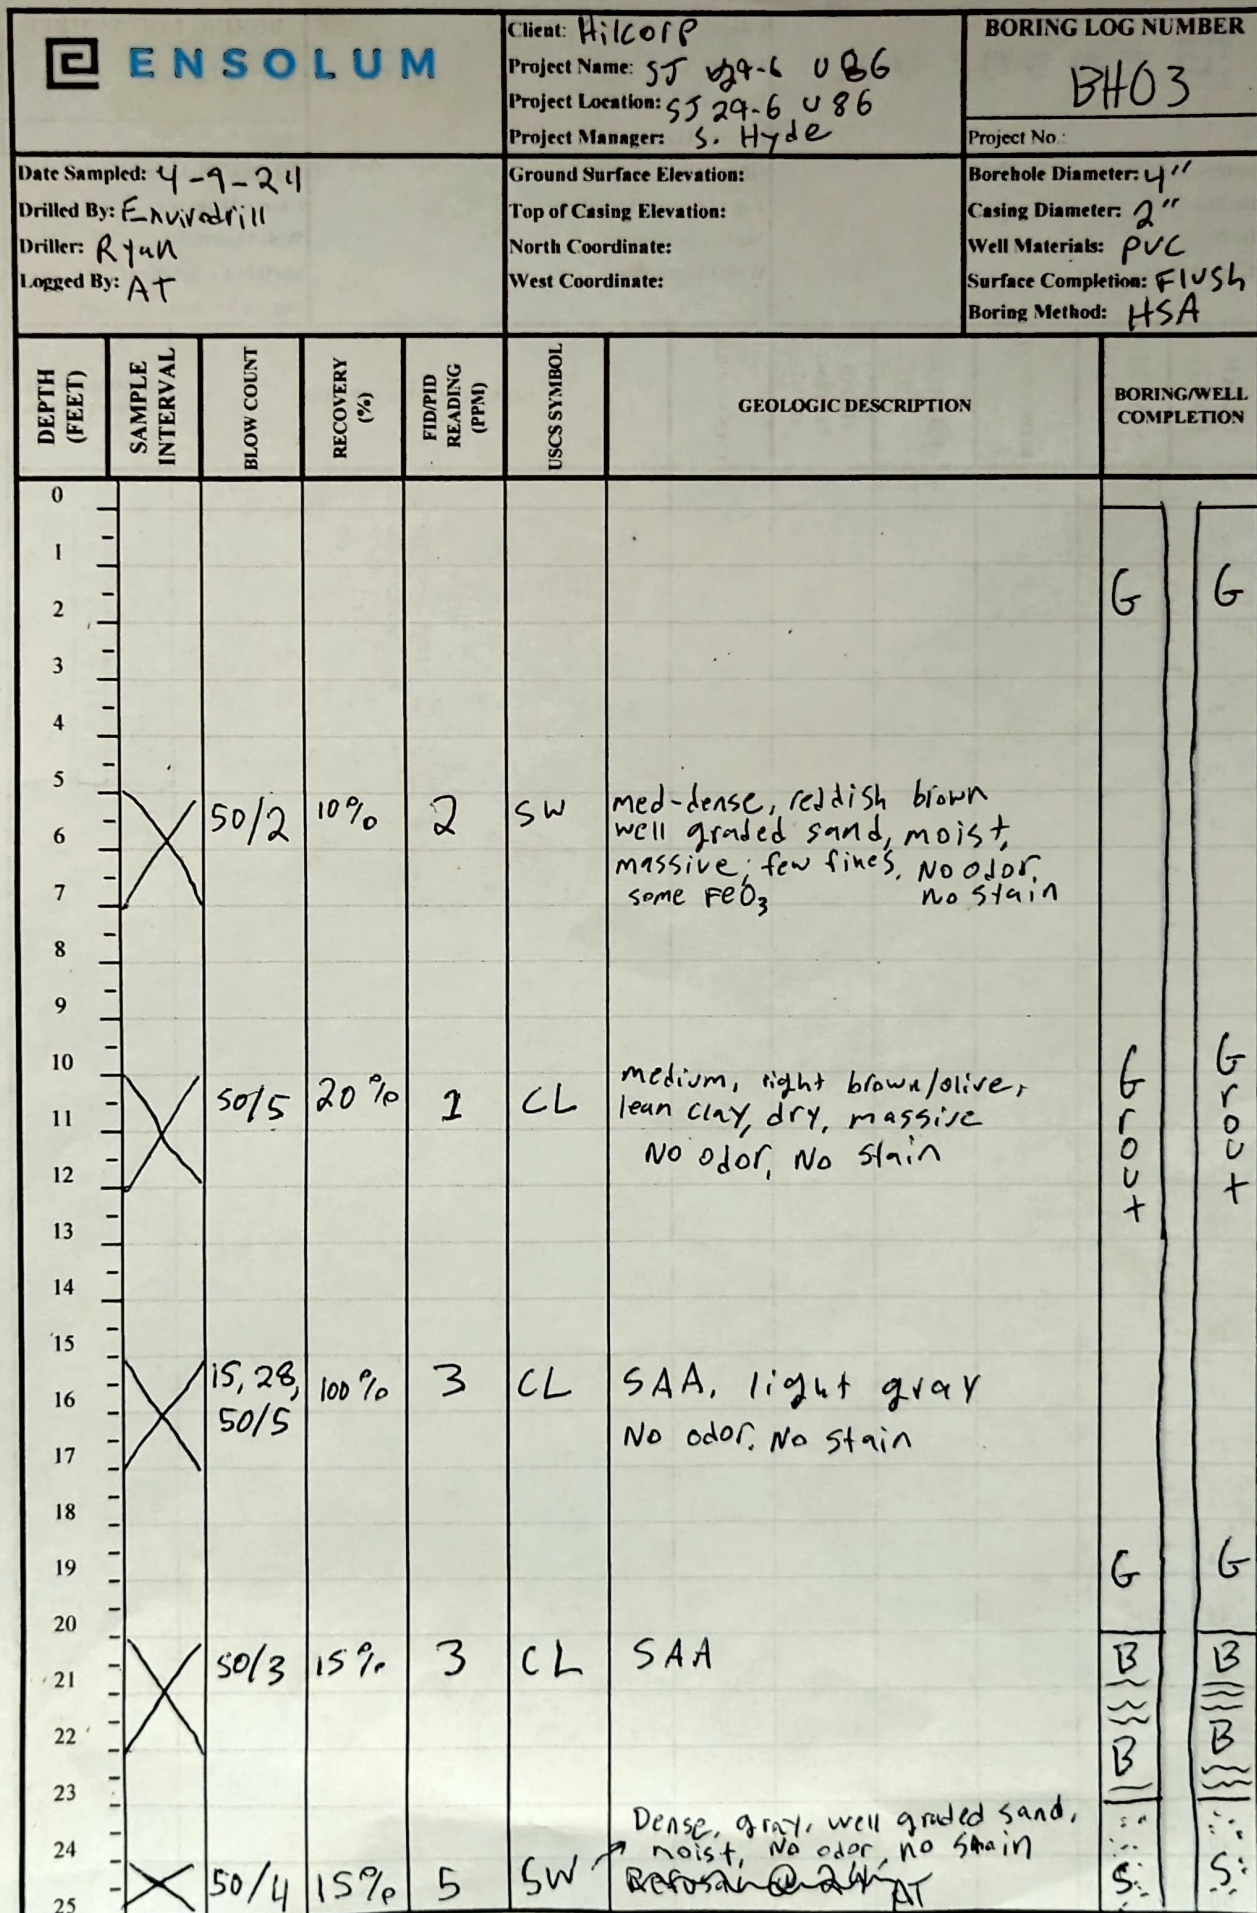 ENSOLUM
Client: Hilcorp
Project Name: SJ 29-6 U 86
Project Location: SJ 29-6 U 86
Project Manager: S. Hyde
BORING LOG NUMBER
BH03
Project No.:
Date Sampled: 4-9-24
Drilled By: Envirodrill
Driller: Ryan
Logged By: AT
Ground Surface Elevation:
Top of Casing Elevation:
North Coordinate:
West Coordinate:
Borehole Diameter: 4"
Casing Diameter: 2"
Well Materials: PVC
Surface Completion: Flush
Boring Method: HSA
DEPTH (FEET)
SAMPLE INTERVAL
BLOW COUNT
RECOVERY (%)
FID/PID READING (PPM)
USCS SYMBOL
GEOLOGIC DESCRIPTION
BORING/WELL COMPLETION
0
1
2 G G
3
4
5
6 50/2 10% 2 SW med-dense, reddish brown
well graded sand, moist,
massive, few fines, No odor,
7 some FeO3 no stain
8
9
10
11 50/5 20% 1 CL medium, light brown/olive,
lean clay, dry, massive
No odor, No stain
Grout Grout
12
13
14
15
16 15, 28, 100% 3 CL SAA, light gray
50/5 No odor, No stain
17
18
19 G G
20
21 50/3 15% 3 CL SAA B B
22 B B
23
24 Dense, gray, well graded sand,
moist, No odor, no stain
25 50/4 15% 5 SW Refusal @ 24' AT S S